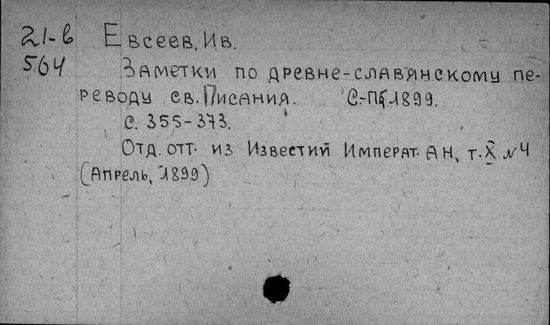 21-в Евсеев, Ив.
564 Заметки по древне-славянскому пе-
реводу св. Писания. С.-Пб 1899.
с. 355-373.
Отд. отт. из Известий Императ. АН, т. X № 4
(Апрель, 1899)